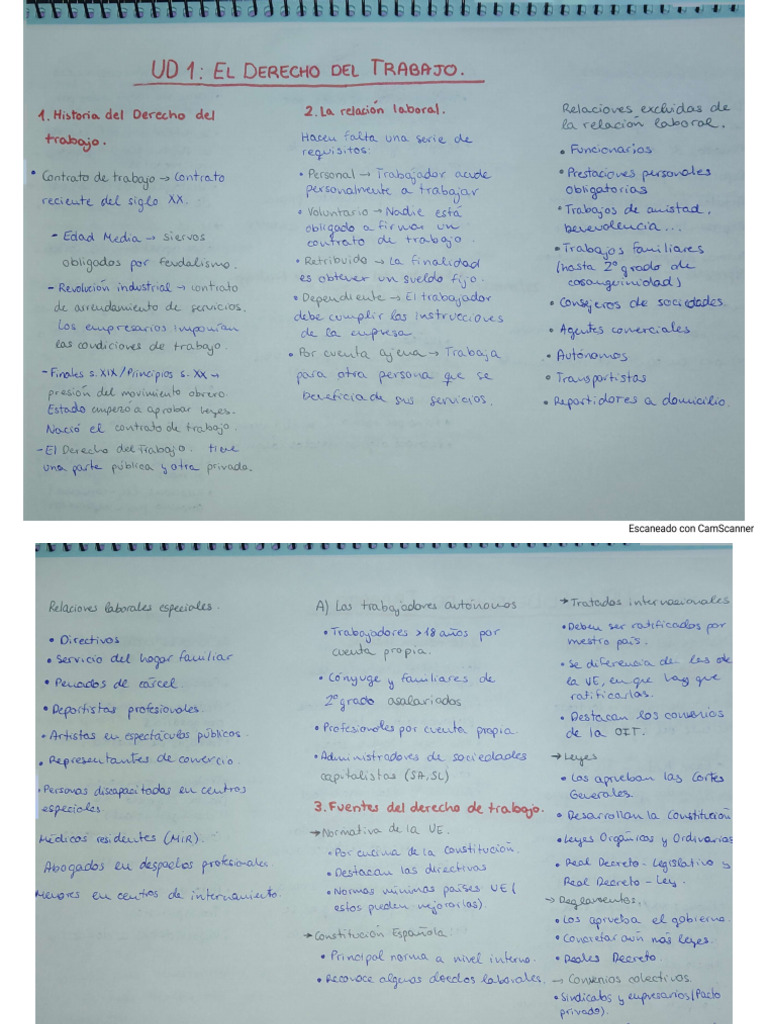 UD 1: EL DERECHO DEL TRABAJO.
1. Historia del Derecho del
trabajo.
• Contrato de trabajo → Contrato
reciente del siglo XX.
- Edad Media → siervos
obligados por feudalismo.
- Revolución industrial → contrato
de arrendamiento de servicios.
Los empresarios imponían
las condiciones de trabajo.
- Finales s. XIX / Principios s. XX →
presión del movimiento obrero.
Estado empezó a aprobar leyes.
Nació el contrato de trabajo.
- El Derecho del Trabajo. tiene
una parte pública y otra privada.
2. La relación laboral.
Hacen falta una serie de
requisitos:
• Personal → Trabajador acude
personalmente a trabajar
• Voluntario → Nadie está
obligado a firmar un
contrato de trabajo.
• Retribuido → La finalidad
es obtener un sueldo fijo.
• Dependiente → El trabajador
debe cumplir las instrucciones
de la empresa.
• Por cuenta ajena → Trabaja
para otra persona que se
beneficia de sus servicios.
Relaciones excluidas de
la relación laboral.
• Funcionarios
• Prestaciones personales
obligatorias
• Trabajos de amistad,
benevolencia...
• Trabajos familiares
(hasta 2º grado de
cosanguinidad)
• Consejeros de sociedades
• Agentes comerciales
• Autónomos
• Transportistas
• Repartidores a domicilio.
Escaneado con CamScanner
Relaciones laborales especiales.
• Directivos
• Servicio del hogar familiar
• Penados de cárcel
• Deportistas profesionales.
• Artistas en espectáculos públicos.
• Representantes de comercio.
• Personas discapacitadas en centros
especiales.
Médicos residentes (MIR).
Abogados en despachos profesionales.
Menores en centros de internamiento.
A) Los trabajadores autónomos
• Trabajadores >18 años por
cuenta propia.
• Cónyuge y familiares de
2º grado asalariados
• Profesionales por cuenta propia.
• Administradores de sociedades
capitalistas (SA, SL)
3. Fuentes del derecho de trabajo.
→ Normativa de la UE.
• Por encima de la constitución.
• Destacan las directivas
• Normas mínimas países UE (
estos pueden mejorarlas).
→ Constitución Española.
• Principal norma a nivel interno.
• Reconoce algunos dcedos laborales.
→ Tratados internacionales
• Deben ser ratificados por
nuestro país.
• Se diferencia de los de
la UE, en que hay que
ratificarlas.
• Destacan los convenios
de la OIT.
→ Leyes
• Las aprueban las Cortes
Generales.
• Desarrollan la Constitución
• Leyes Orgánicas y Ordinarias
• Real Decreto-Legislativo y
Real Decreto-Ley.
→ Reglamentos.
• Los aprueba el gobierno.
• Concretar aún más leyes.
• Reales Decreto.
→ Convenios colectivos.
• Sindicatos y empresarios (Pacto
privado).